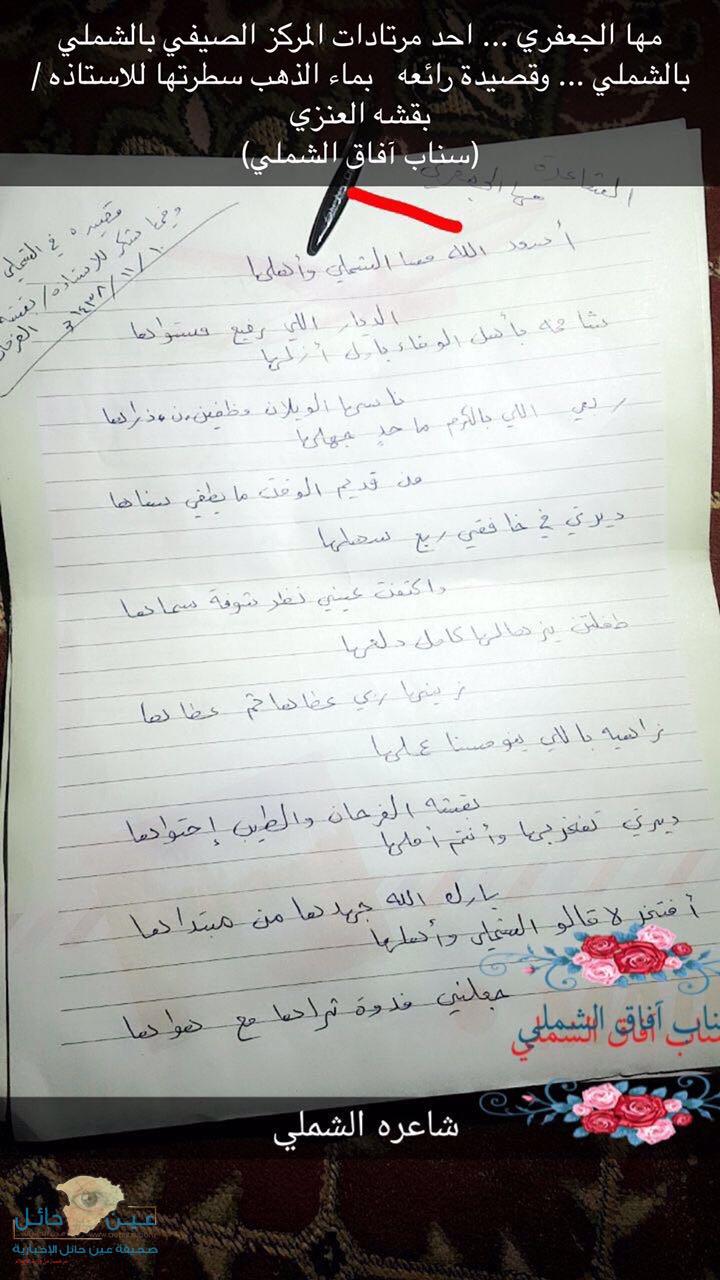 مها الجعفري ... احد مرتادات المركز الصيفي بالشملي
بالشملي ... وقصيدة رائعه بماء الذهب سطرتها للاستاذه /
بقشه العنزي
(سناب آفاق الشملي)
الشاعرة
مها الجعفري
قصيده في الشملي
وفيها شكر للاستاذه / بقشه
الفرحان
١٤٣٨/١١/١٠
الله الشملي وأهلها
الديار اللي رفيع مستواها
شامخه بأهل الوفاء بأول أزلها
ربعي اللي بالكرم ماحدٍ جهلها
من قديم الوقت ما يطفي سناها
ديرتي في خافقي ربع سهلها
واكتفت عيني نظر شوفة سماها
كامل دلعها
زينها ربي عطاها ثم عطاها
زاهيه باللي عملها
بقشه الفرحان والطيب إحتواها
ديرتي تفخر بها وأنتم أهلها
بارك الله جهدها من مبتداها
أفتخر لا قالو الشملي وأهلها
جعلني فدوة ثراها مع هواها
سناب آفاق الشملي
سناب آفاق الشملي
شاعره الشملي
عين حائل
صحيفة عين حائل الإخبارية